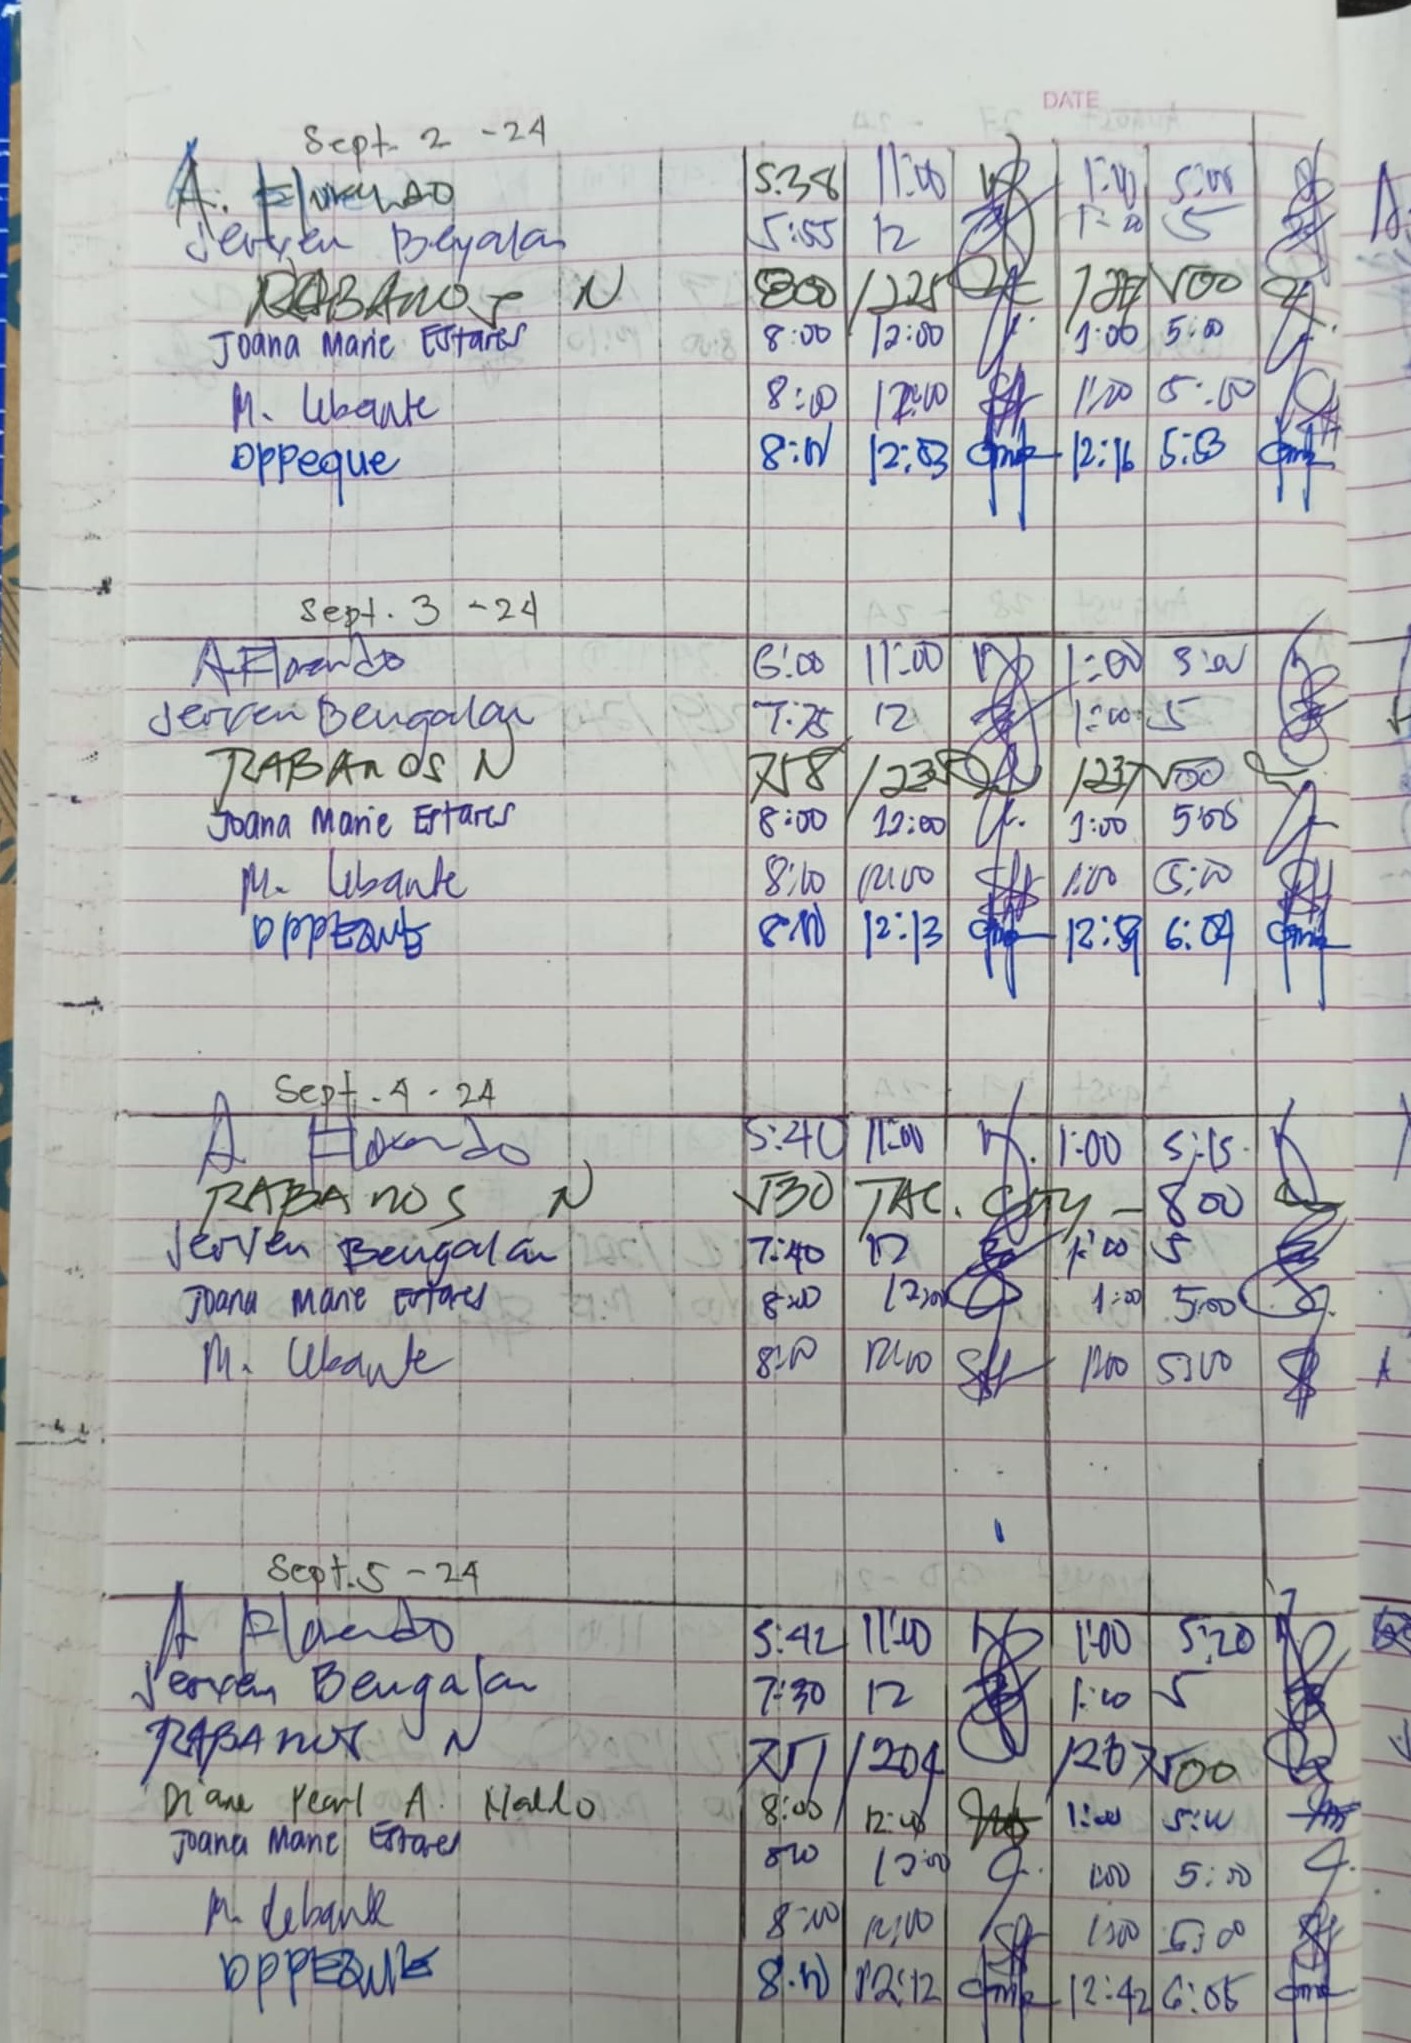 DATE
Sept. 2 - 24
A. 5:38 11:00 1:00 5:00
Jerxen 5:55 12 5
RABANOS N 800 1225 500
Joana Marie Estares 8:00 12:00 1:00 5:00
M. Lebante 8:00 12:00 1:00 5:00
DPPeque 8:01 12:03 12:16 5:03
Sept. 3 - 24
A Florendo 6:00 11:00 1:00 5:00
Jerxen Bengalan 12 1:00 5
RABANOS N 758 1235 1237 500
Joana Marie Estares 8:00 12:00 1:00 5:00
M. Lebante 8:00 12:00 1:00 5:00
DPPEQUE 12:13 12:59 6:09
Sept. 4 - 24
A Florendo 5:40 11:00 1:00 5:15
RABANOS N 530 TAC. CITY - 800
Jerxen Bengalan 7:40 12 1:00 5
Joana Marie Estares 8:00 12:00 1:00 5:00
M. Lebante 8:00 12:00 1:00 5:00
Sept. 5 - 24
A Florendo 5:42 11:00 1:00 5:20
Jerxen Bengalan 7:30 12 1:00 5
RABANOS N 751 1204 1207 500
Diane Pearl A. 8:00 12:00 1:00 5:00
Joana Marie Estares 800 12:00 1:00 5:00
M. Lebante 8:00 12:00 1:00 5:00
DPPEQUE 12:12 12:42 6:05